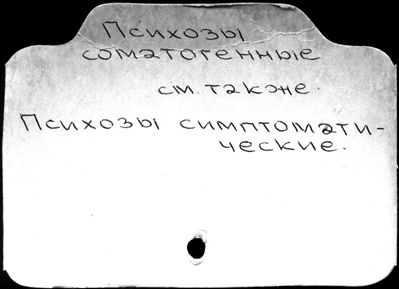 Психозы
соматогенные
см. также.
Психозы симптомати-
ческие.